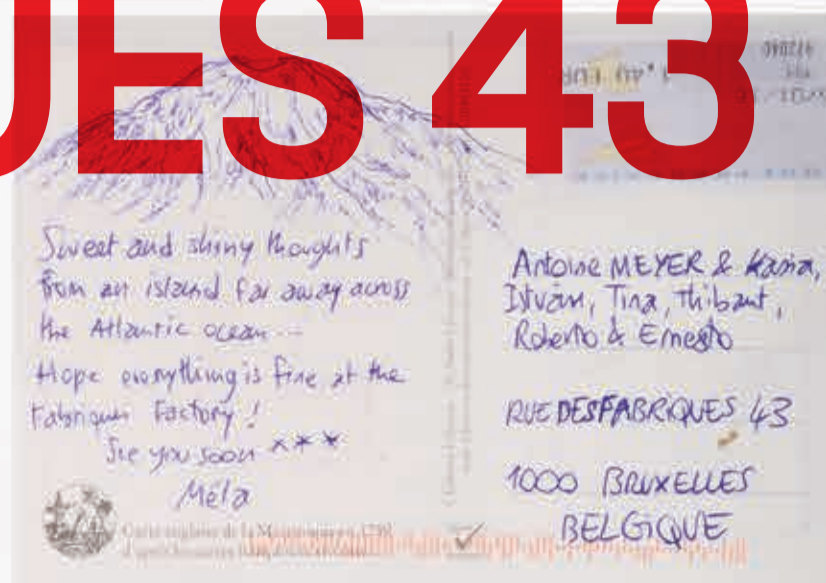 UES 43
Sweet and shiny thoughts
from an island far away across
the Atlantic ocean...
Hope everything is fine at the
Fabriques Factory !
See you soon ***
Méla
Antoine MEYER & Kasia,
István, Tina, Thibaut,
Roberto & Ernesto
RUE DES FABRIQUES 43
1000 BRUXELLES
BELGIQUE
EUR
Carte anglaise de la Martinique